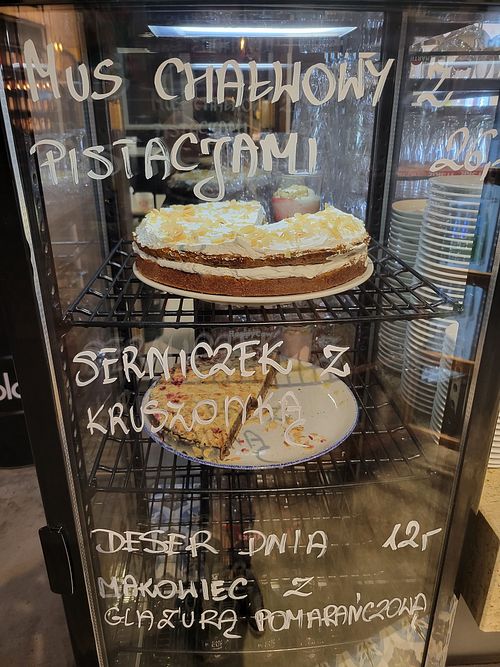 MUS CHAŁWOWY Z
PISTACJAMI 26,
SERNICZEK Z
KRUSZONKĄ
DESER DNIA 12,-
MAKOWIEC Z
GLAZURĄ POMARAŃCZOWĄ